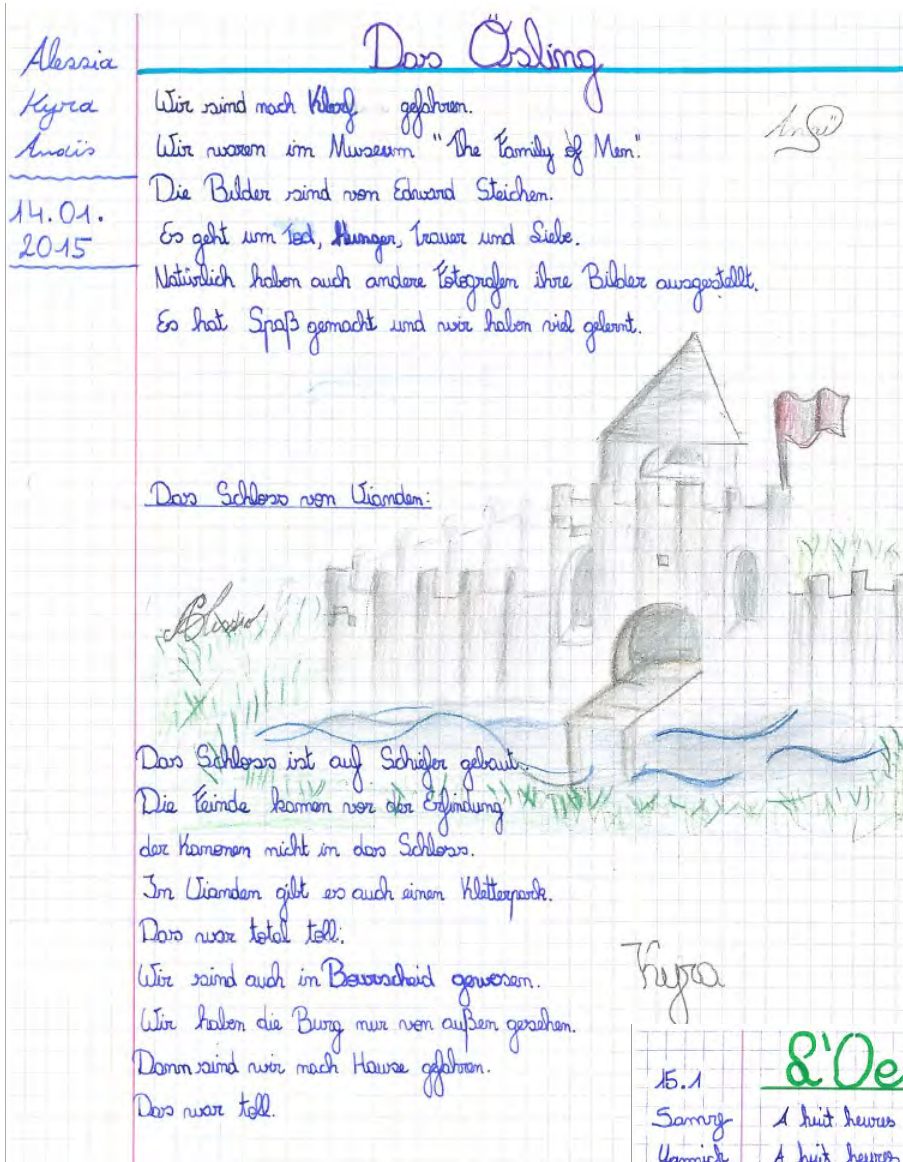 Das Ösling
Alessia
Kyra
Andiïs
14.01.
2015
Wir sind nach Klerf gefahren.
Wir waren im Museum "The Family of Men".
Die Bilder sind von Edward Steichen.
Es geht um Tod, Hunger, Trauer und Liebe.
Natürlich haben auch andere Fotografen ihre Bilder ausgestellt.
Es hat Spaß gemacht und wir haben viel gelernt.
Das Schloss von Vianden:
Alessia
Das Schloss ist auf Schiefer gebaut.
Die Feinde kamen vor der Erfindung
der Kanonen nicht in das Schloss.
In Vianden gibt es auch einen Kletterpark.
Das war total toll.
Wir sind auch in Bourscheid gewesen.
Wir haben die Burg nur von außen gesehen.
Dann sind wir nach Hause gefahren.
Das war toll.
Kyra
15.1
Samry
Yannick
&'Oe
A huit heures
A huit heures